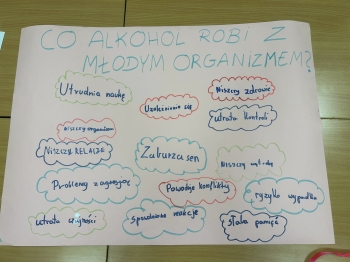 CO ALKOHOL ROBI Z
MŁODYM ORGANIZMEM?
Utrudnia naukę
Uzależnienie się
Niszczy zdrowie
utrata kontroli
Niszczy organizm
NISZCZY RELACJE
Zaburza sen
Niszczy wątrobę
Problemy z agresją
Powoduje konflikty
ryzyko wypadku
utrata czujności
spowolnienie reakcje
słaba pamięć